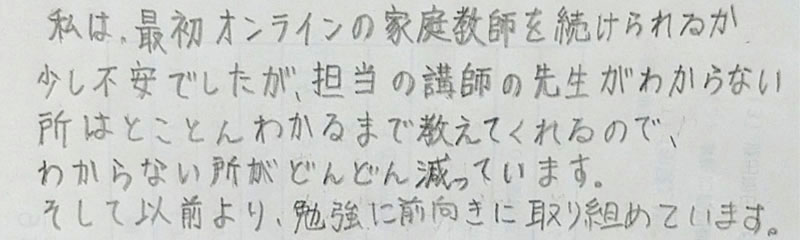 私は、最初オンラインの家庭教師を続けられるか
少し不安でしたが、担当の講師の先生がわからない
所はとことんわかるまで教えてくれるので、
わからない所がどんどん減っています。
そして以前より、勉強に前向きに取り組めています。